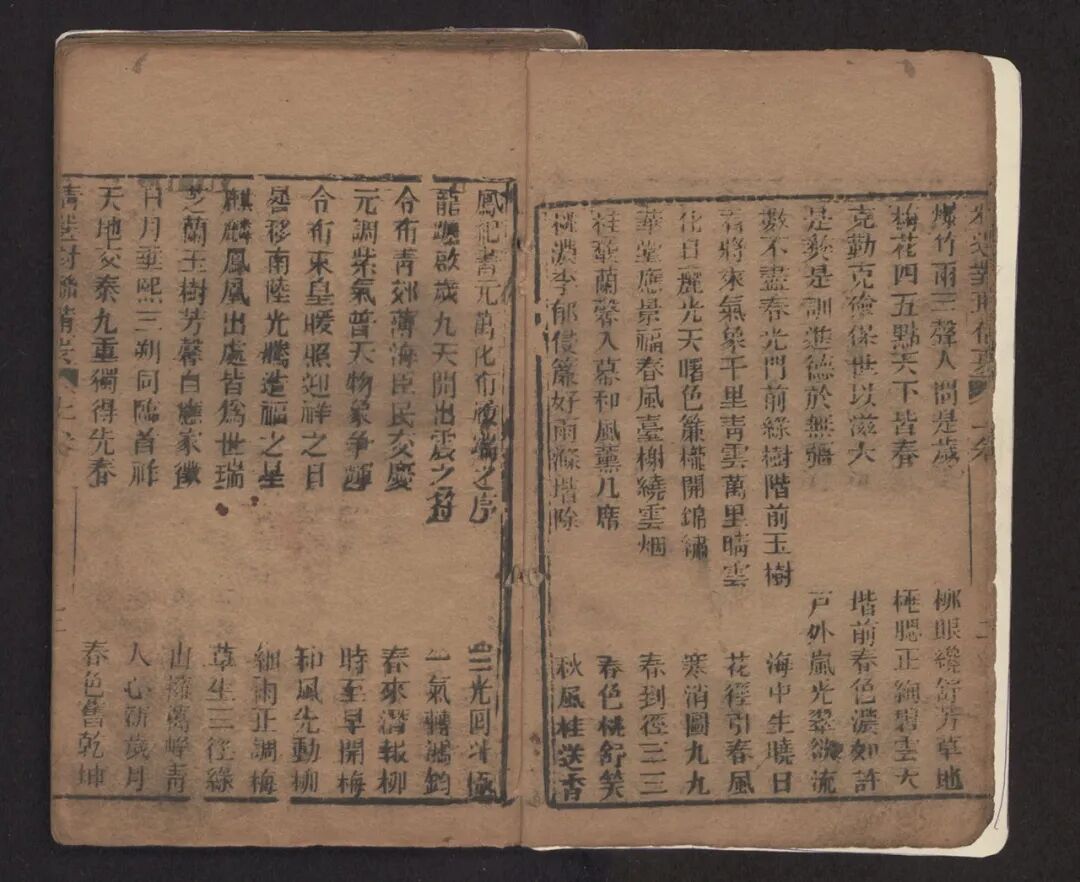 爆竹兩三聲人間是歲
梅花四五點天下皆春
克勤克儉保世以滋大
是彝是訓進德於無彊
數不盡春光門前綠樹階前玉樹
看將來氣象千里青雲萬里晴雲
化日麗光天曙色簾櫳開錦繡
華堂應景福春風臺榭繞雲烟
桂馥蘭馨入幕和風薰几席
桃濃李郁侵簾好雨滌堦除
柳眼纔舒芳草地
正絢碧雲天
堦前春色濃如許
戶外嵐光翠欲流
海中生曉日
花徑引春風
寒消圖九九
春到徑三三
春色桃舒笑
秋風桂送香
鳳紀書元萬化布履端之序
龍躔啟歲九天開出震之符
令布青郊薄海臣民交慶
元調紫氣普天物象爭輝
令布東皇暖照迎祥之日
晷移南陸光騰造福之星
麒麟鳳凰出處皆為世瑞
芝蘭玉樹芳馨自應家徵
日月重熙三朔同臨首祚
天地交泰九重獨得先春
三光回斗極
一氣轉鴻鈞
春來潛報柳
時至早開梅
和風先動柳
細雨正調梅
草生三徑綠
山擁萬峰青
人心新歲月
春色舊乾坤
對聯精